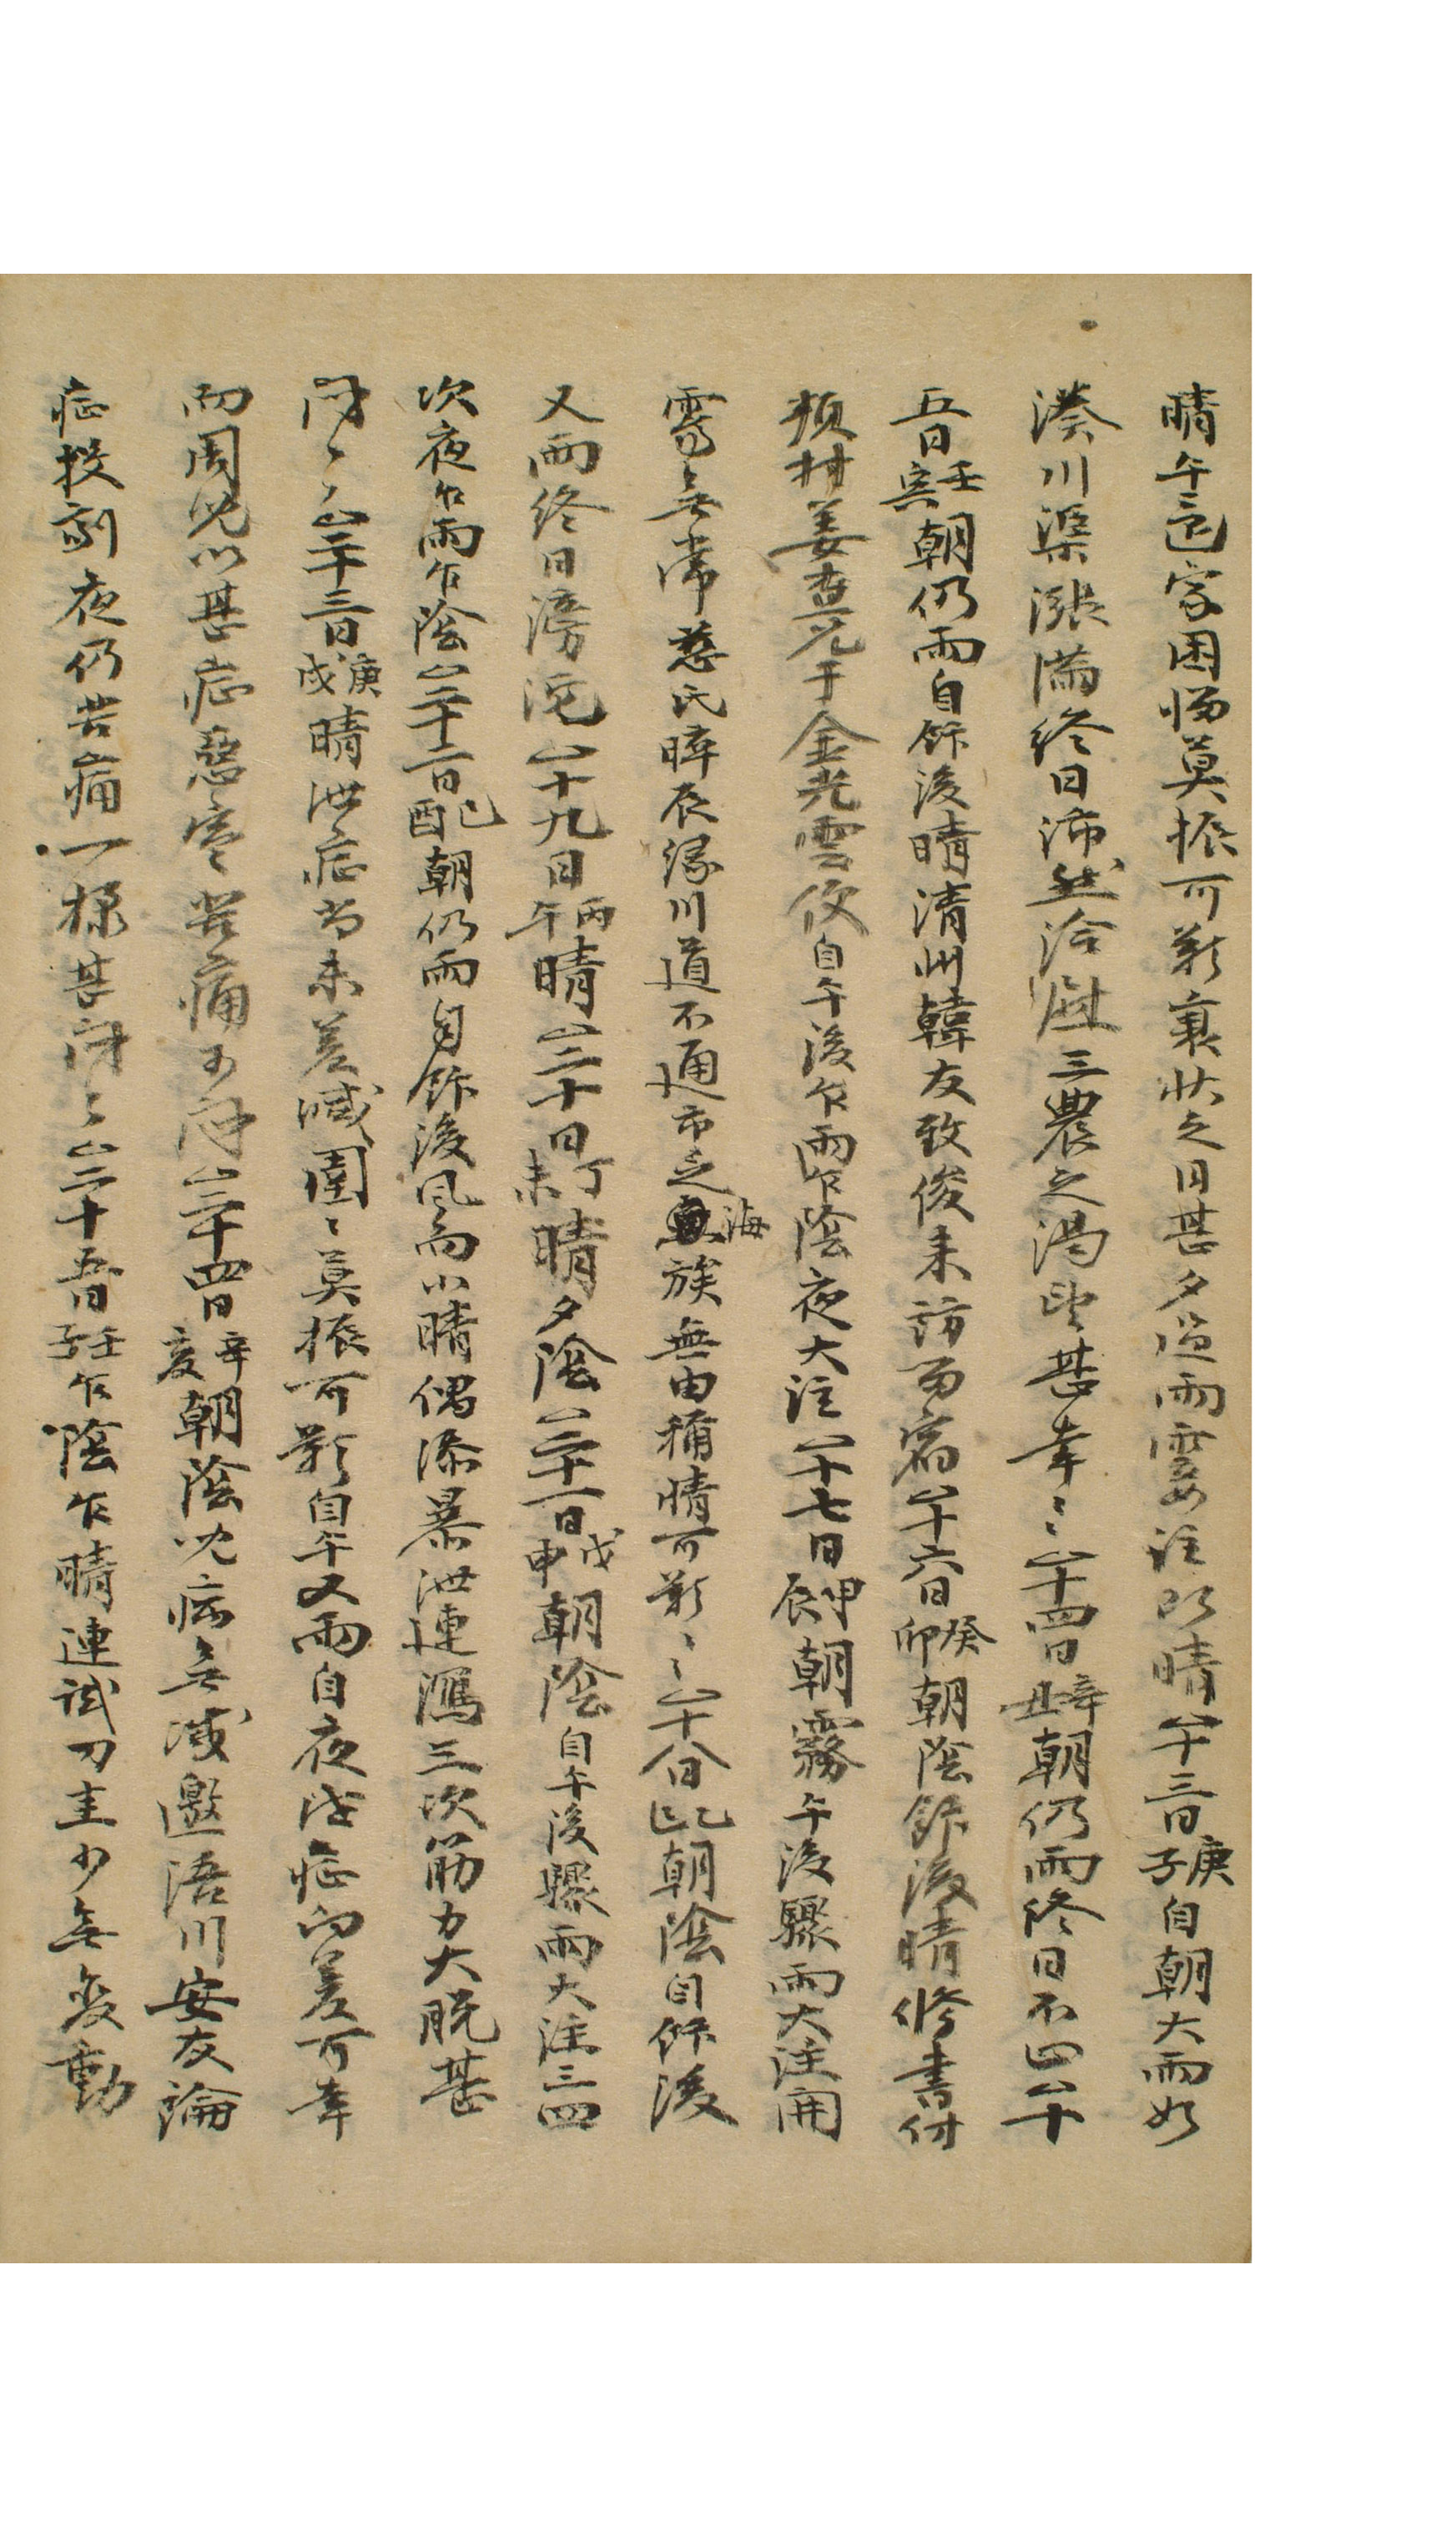 晴午還家困惱莫振可歎衰狀之日甚夕過雨霎注旋晴△十三日庚子自朝大雨如
湊川渠漲滿終日沛然洽 三農之渴望甚幸〻△十四日辛丑朝仍雨終日不止△十
五日壬寅朝仍雨自飯後晴清州韓友致俊來訪而宿△十六日癸卯朝陰飯後晴修書付
項村姜查兄于金光雲便自午後乍雨乍陰夜大注△十七日甲辰朝霧午後驟雨大注開
霽無常慈氏晬辰緣川道不通市之海魚族無由稱情可歎〻△十八日乙巳朝陰自飯後
又雨終日滂沱△十九日丙午晴△二十日丁未晴夕陰△二十一日戊申朝陰自午後驟雨大注三四
次夜乍雨乍陰△二十二日己酉朝仍雨自飯後風而小晴偶添暴泄連瀉三次筋力大脫甚
悶〻△二十三日庚戌晴泄症尚未差減圉〻莫振可歎自午又雨自夜泄症向差可幸
而周兒以甚症惡寒苦痛可悶△二十四日辛亥朝陰兒病無減邀浯川安友論
症投劑夜仍苦痛一樣甚悶〻△二十五日壬子乍陰乍晴連試刀圭少無變動